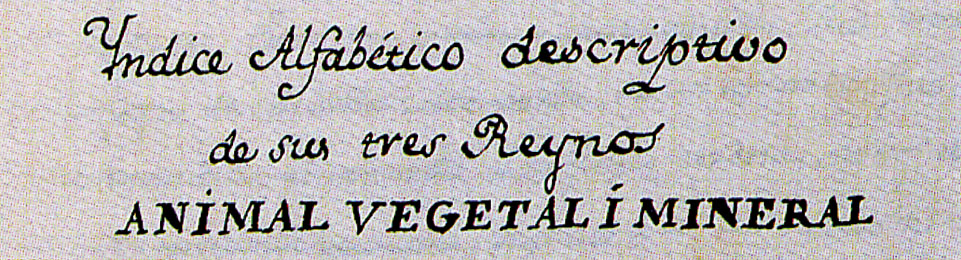 Yndice Alfabético descriptivo
de sus tres Reynos
ANIMAL VEGETAL Í MINERAL